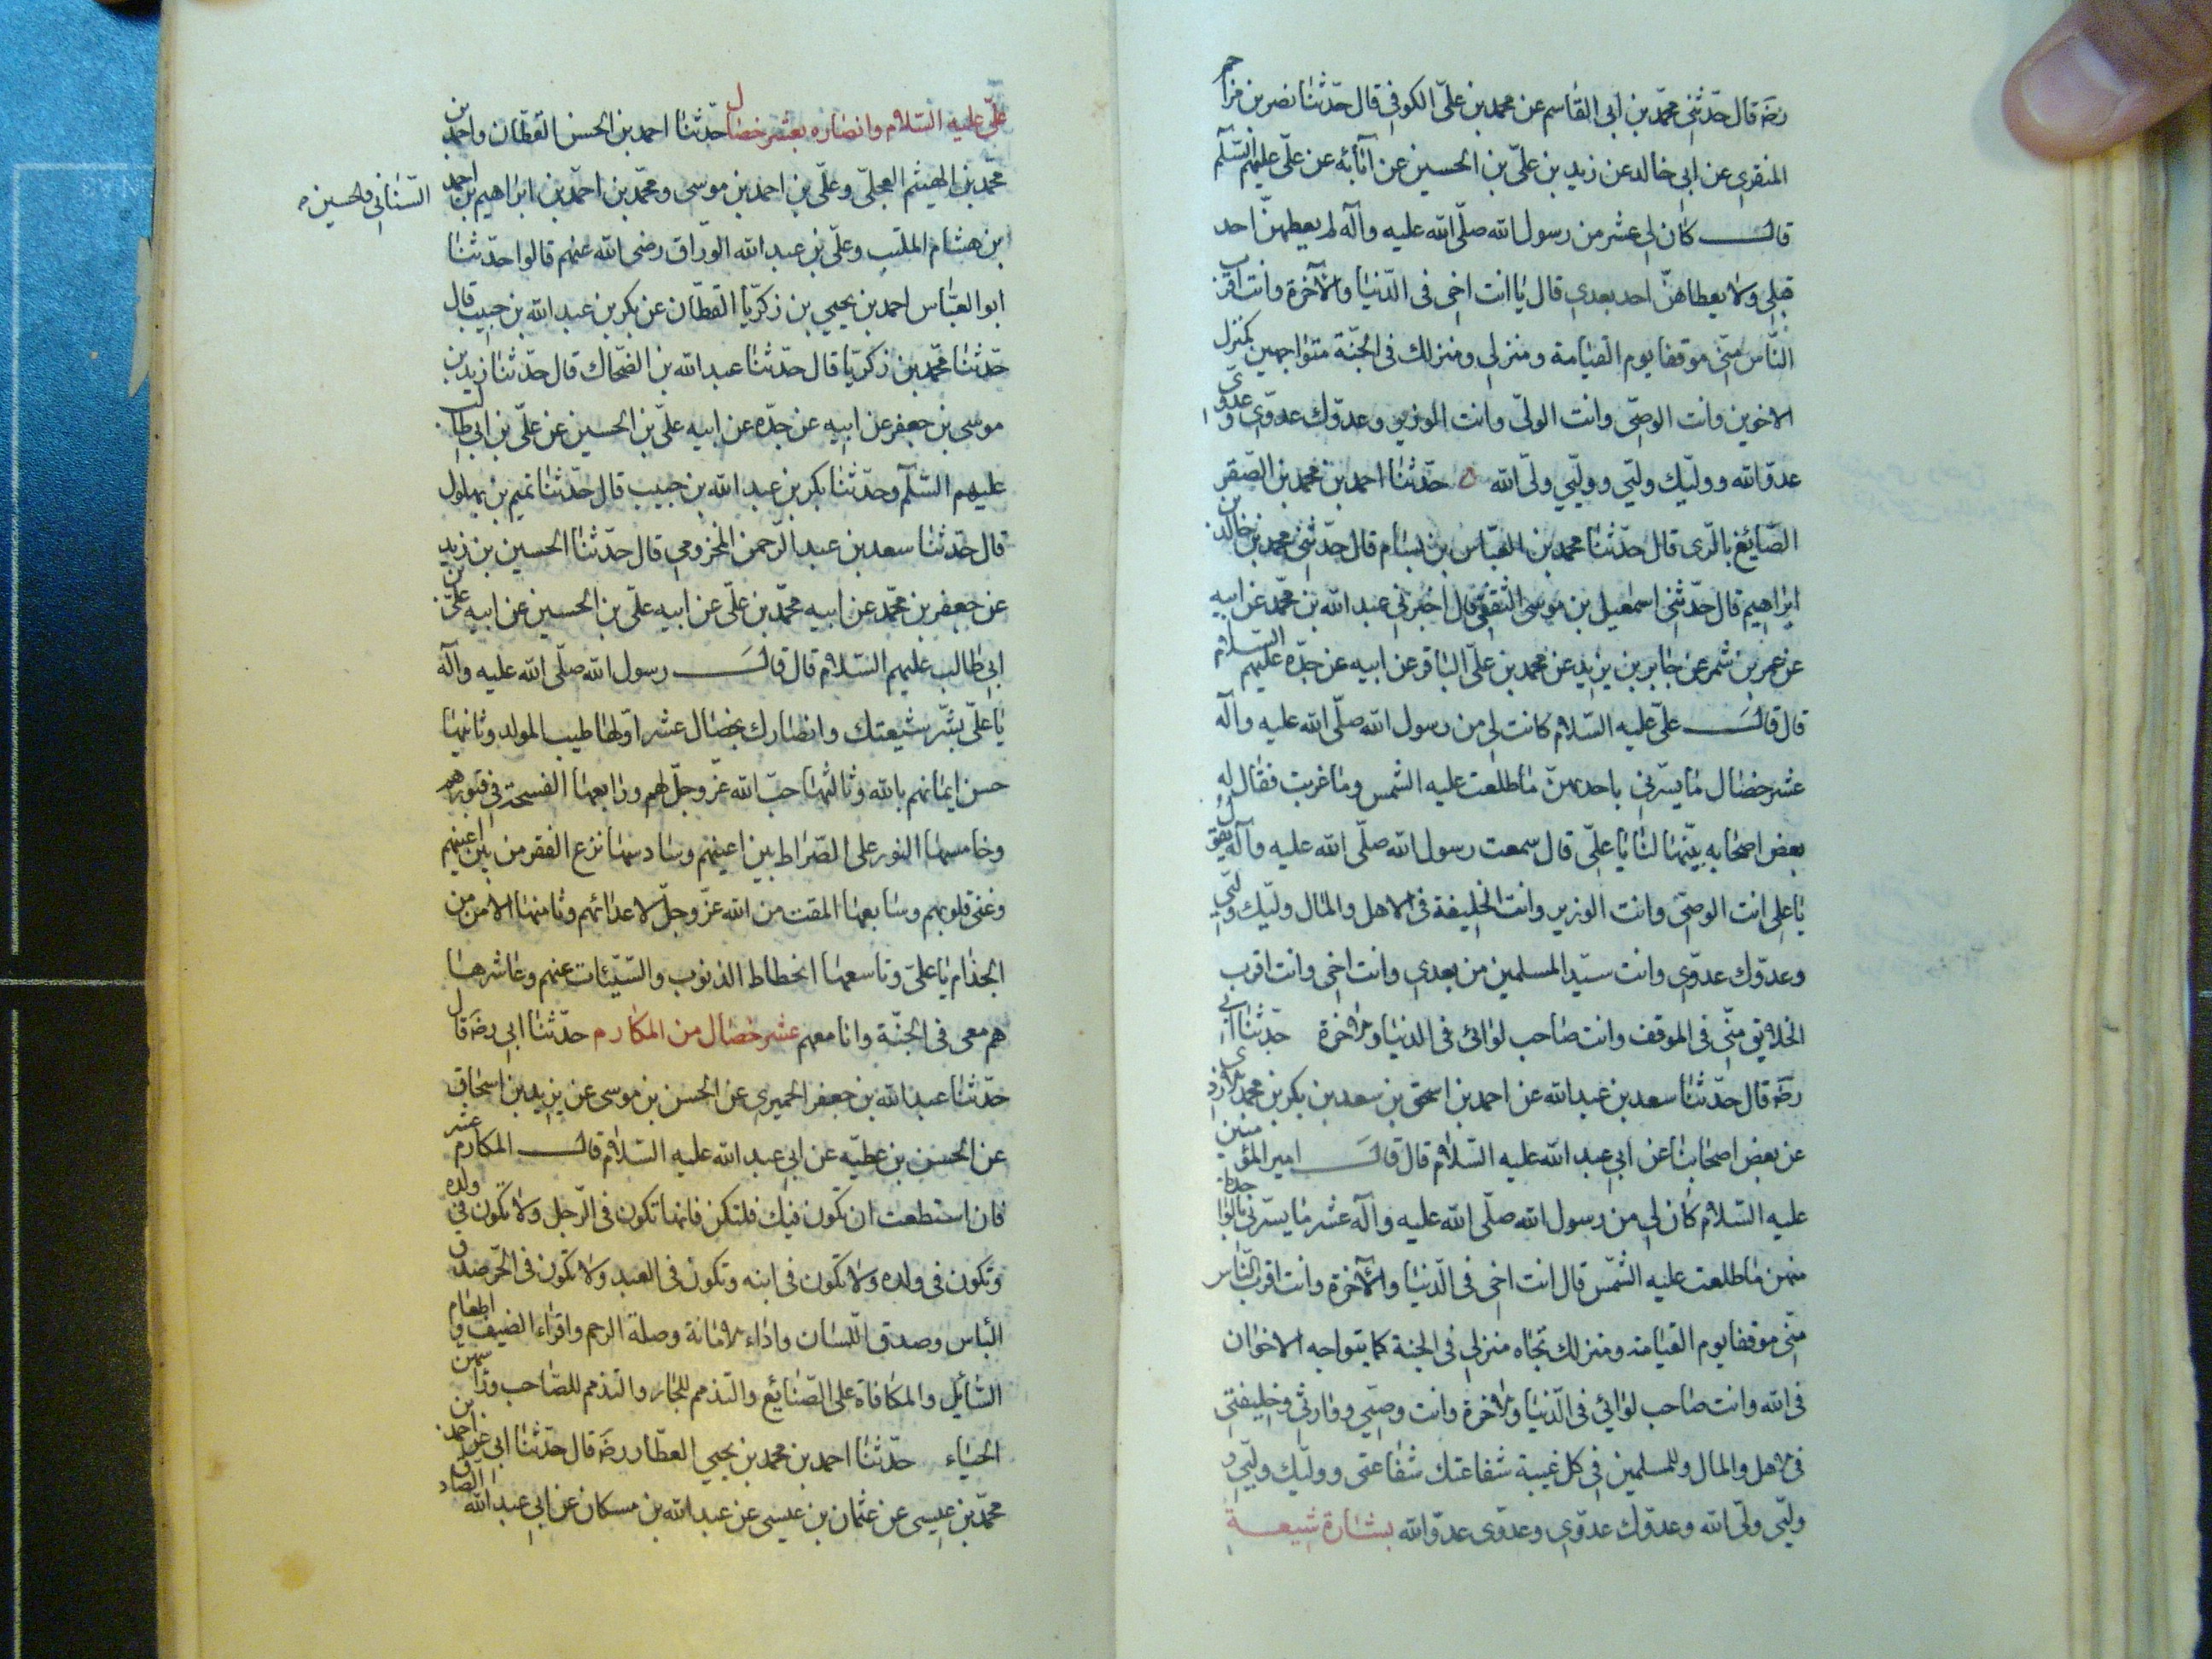 رضَه قال حدّثني محمّد بن ابي القاسم عن محمد بن علىّ الكوفي قال حدّثنا نصر بن مزاحم
المنقري عن ابي خالد عن زيد بن علىّ بن الحسين عن آبائه عن علىّ عليهم السّلم
قال كان لي عشر من رسول الله صلّى الله عليه وآله لم يعطهنّ احد
قبلي ولا يعطاهنّ احد بعدي قال يا انت اخي في الدّنيا والآخرة وانت اقرب
النّاس منّي موقفا يوم القيامة ومنزلي ومنزلك في الجنّة متواجهين كمنزل
الاخوين وانت الوصّي وانت الولىّ وانت الوزير وعدوّك عدوّي وعدوّى
عدوّ الله ووليّك وليّي ووليّي ولىّ الله حدّثنا احمد بن محمد بن الصّقر
الصّايغ بالرّى قال حدّثنا محمد بن العبّاس بن بسّام قال حدّثني محمد بن خالد بن
ابراهيم قال حدّثني اسمعيل بن موسى الثقفي قال اخبرني عبد الله بن محمّد عن ابيه
عن عمر بن شمر عن جابر بن يزيد عن محمد بن علىّ الباقر عن ابيه عن جدّه عليهم السلام
قال قالَ علىّ عليه السّلام كانت لي من رسول الله صلّى الله عليه وآله
عشر خصال ما يسّرني باحديهنّ ما طلعت عليه الشّمس وما غربت فقال له
بعض اصحابه بيّنها لنا يا علىّ قال سمعت رسول الله صلّى الله عليه وآله يقول
يا على انت الوصىّ وانت الوزير وانت الخليفة في الاهل والمال وليّك وليّي
وعدوّك عدوّي وانت سيّد المسلمين من بعدي وانت اخي وانت اقرب
الخلايق منّي في الموقف وانت صاحب لوائي في الدنيا والآخرة حدّثنا ابي
رضَه قال حدّثنا سعد بن عبد الله عن احمد بن اسحق بن سعد بن بكر بن محمد الازدى
عن بعض اصحابنا عن ابي عبد الله عليه السّلام قال قالَ امير المؤمنين
عليه السّلام كان لي من رسول الله صلّى الله عليه وآله عشر ما يسّرني بالواحدة
منهن ما طلعت عليه الشّمس قال انت اخي في الدّنيا والآخرة وانت اقرب النّاس
منّي موقفا يوم القيامة ومنزلك تجاه منزلي في الجنة كما يتواجه الاخوان
في الله وانت صاحب لوائي في الدّنيا والآخرة وانت وصيّي ووارثي وخليفتي
في الاهل والمال وللمسلمين في كل غيبة شفاعتك شفاعتى ووليّك وليّي و
وليّي ولىّ الله وعدوّك عدوّي وعدوّى عدوّ الله بشارة شيعة
علىّ عليه السّلام وانصاره بعشر خصال حدّثنا احمد بن الحسن القطّان واحمد بن
محمّد بن الهيثم العجلىّ وعلىّ بن احمد بن موسى ومحمّد بن احمّد بن ابراهيم بن احمد
السّناني والحسين
بن هشام المكتب وعلىّ بن عبد الله الورّاق رضى الله عنهم قالوا حدّثنا
ابو العبّاس احمد بن يحيي بن زكريّا القطّان عن بكر بن عبد الله بن حبيب قال
حدّثنا محمّد بن زكريّا قال حدّثنا عبد الله بن الضّحاك قال حدّثنا زيد بن
موسى بن جعفر عن ابيه عن جدّه عن ابيه علىّ بن الحسين عن علىّ بن ابي طالب
عليهم السّلم وحدّثنا بكر بن عبد الله بن حبيب قال حدّثنا تميم بن بهلول
قال حدّثنا سعد بن عبد الرّحمن المخزومي قال حدّثنا الحسين بن زيد
عن جعفر بن محمّد عن ابيه محمّد بن علىّ عن ابيه علىّ بن الحسين عن ابيه علىّ بن
ابي طالب عليهم السّلام قال قالَ رسول الله صلّى الله عليه وآله
يا علىّ بشّر شيعتك وانصارك بخصال عشر اوّلها طيب المولد وثانيها
حسن ايمانهم بالله وثالثها حبّ الله عزّ وجلّ لهم ورابعها الفسحة في قبورهم
وخامسها النور على الصّراط بين اعينهم وسادسها نزع الفقر من بين اعينهم
وغنى قلوبهم وسابعها المقت من الله عزّ وجلّ لاعدائهم وثامنها الامن من
الجذام يا علىّ وتاسعها انحطاط الذنوب والسّيّئات عنهم وعاشرها
هم معى في الجنّة وانا معهم عشر خصال من المكارم حدّثنا ابي رضَه قال
حدّثنا عبد الله بن جعفر الحميري عن الحسن بن موسى عن يزيد بن اسحاق
عن الحسن بن عطيّه عن ابي عبد الله عليه السّلام قالَ المكارم عشر
فان استطعت ان تكون فيك فلتكن فانها تكون في الرّجل ولا تكون في ولده
وتكون في ولده ولا تكون في ابنه وتكون في العبد ولا تكون في الحرّ صدق
البأس وصدق اللّسان واداء الامانة وصلة الرحم واقراء الضيف واطعام
السّائل والمكافاة على الصّنايع والتّذمم للجار والتّذمم للصّاحب وراسهن
الحياء حدّثنا احمد بن محمد بن يحيي العطّار رضَه قال حدّثنا ابي عن احمد بن
محمّد بن عيسي عن عثمان بن عيسى عن عبد الله بن مسكان عن ابي عبد الله الصادق